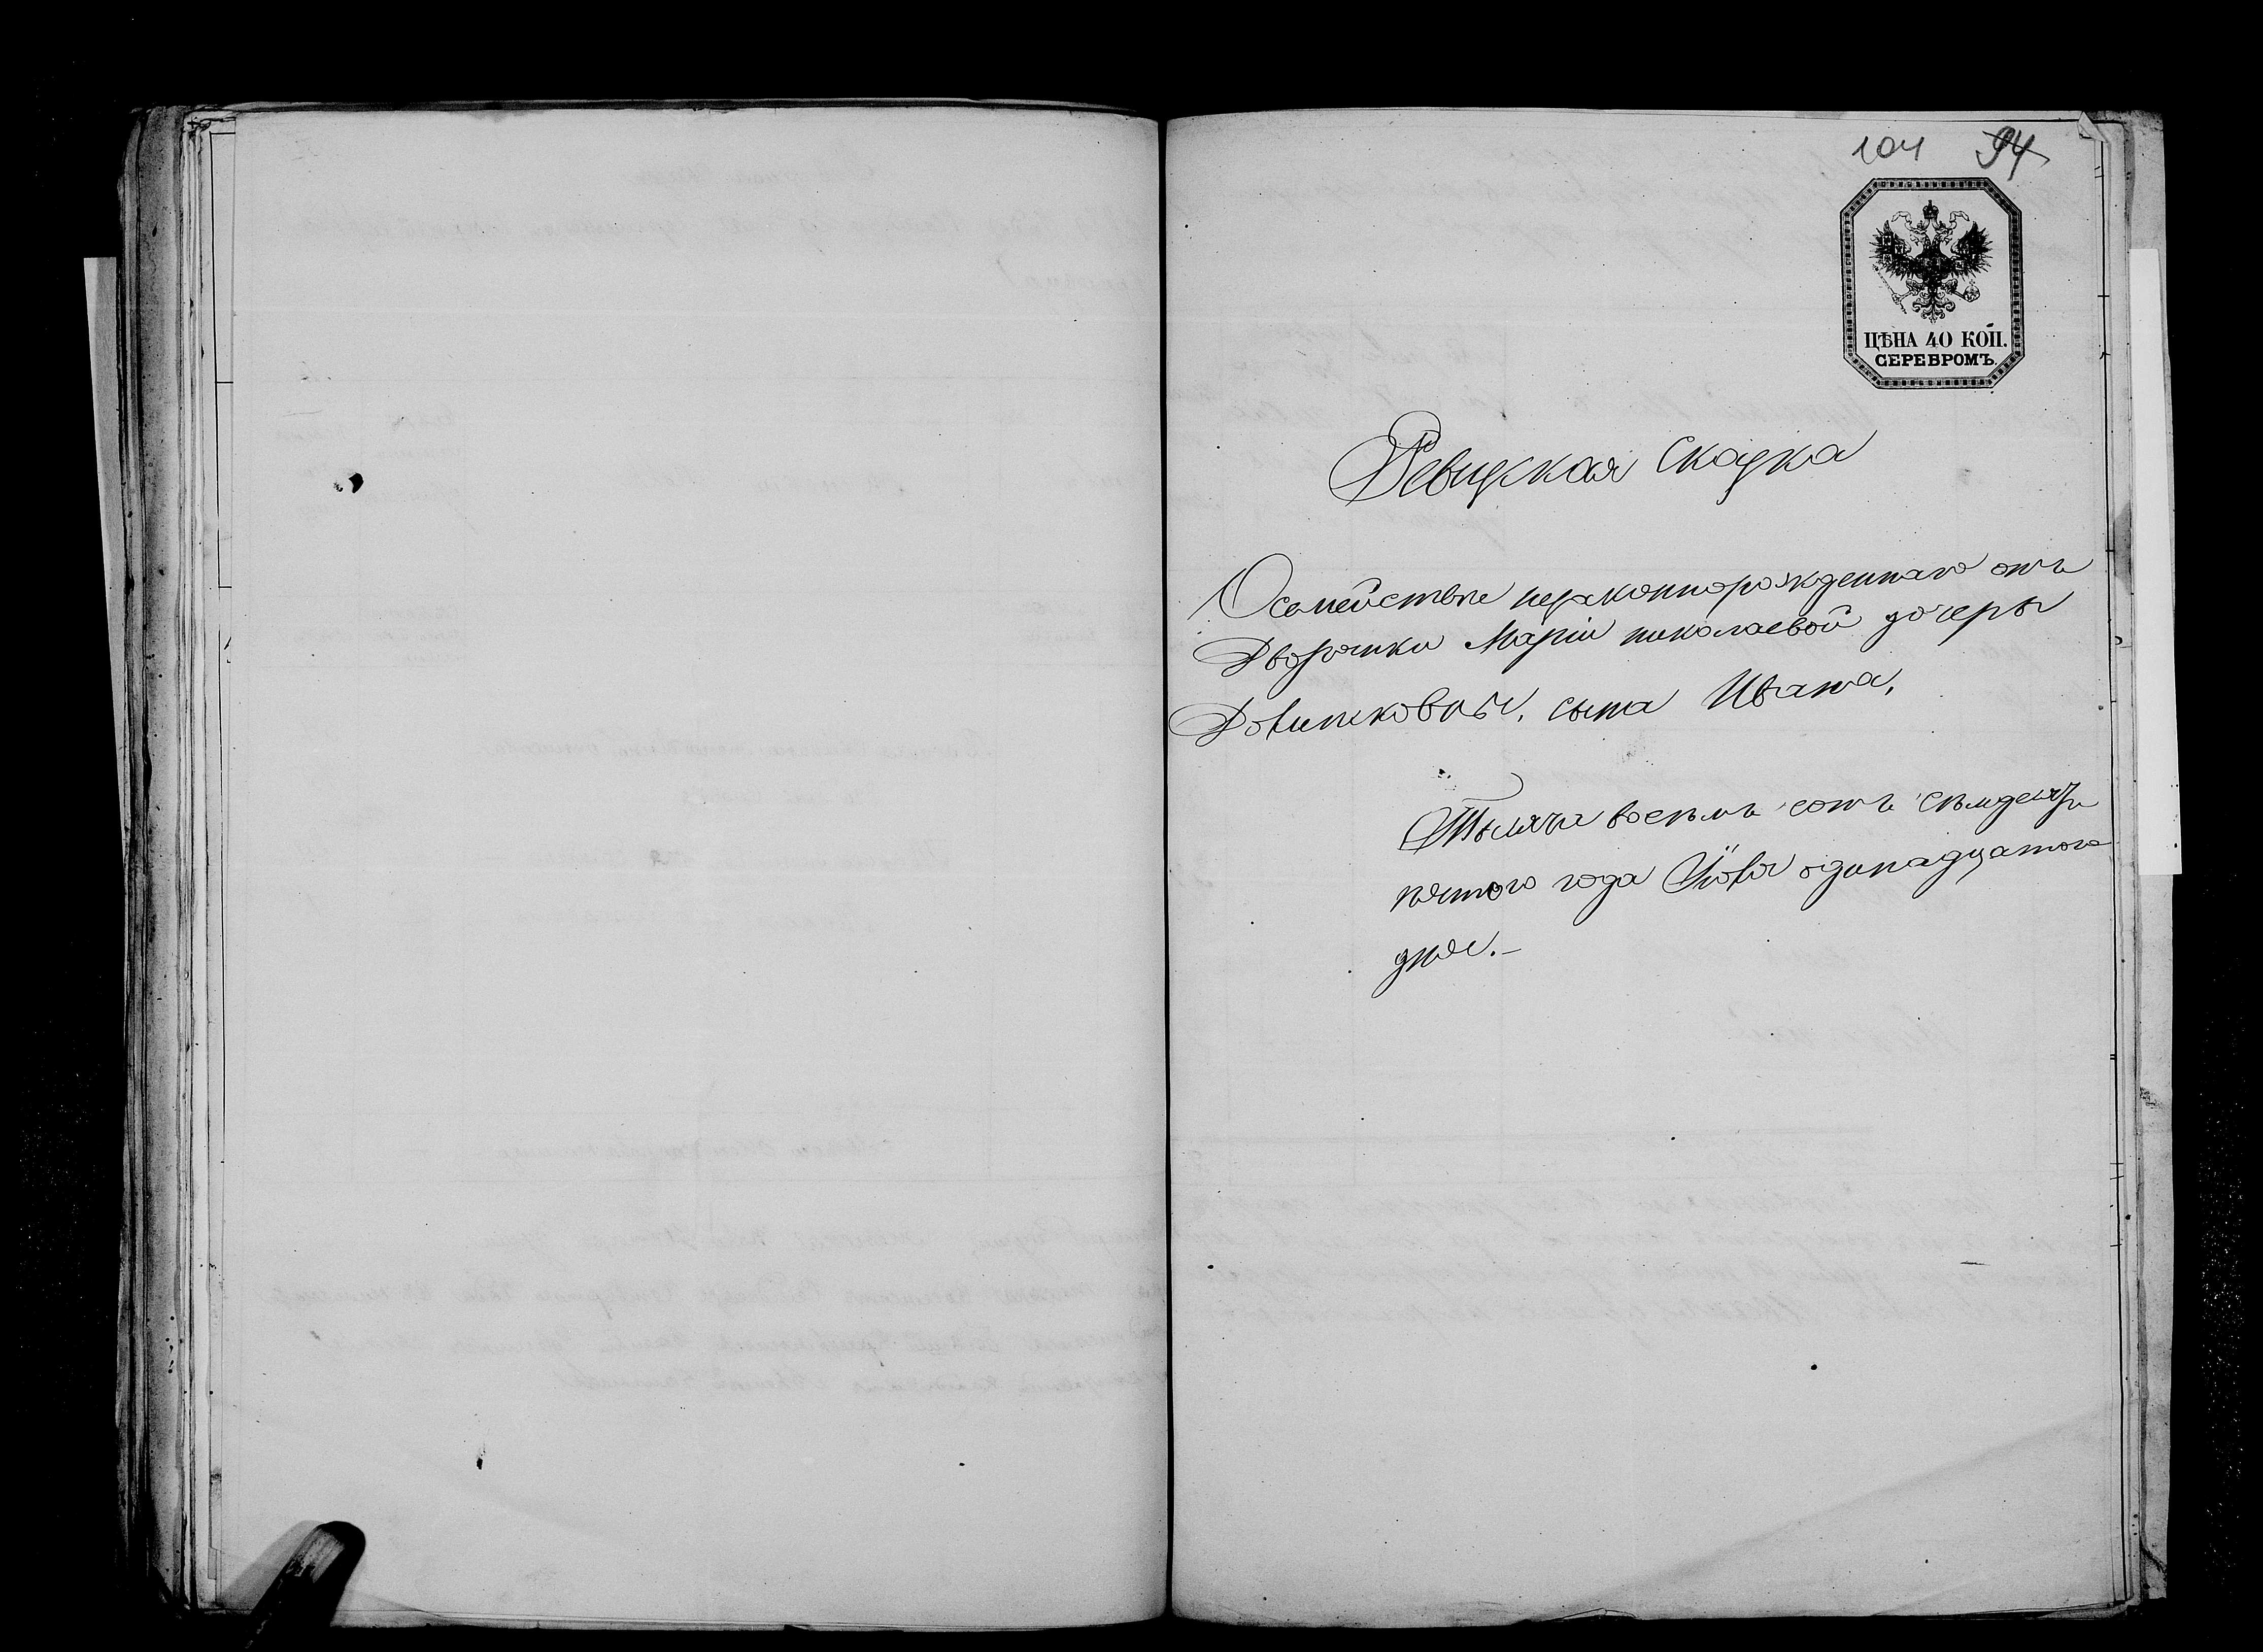 104 94
ЦѢНА 40 КОП.
СЕРЕБРОМЪ.
Ревизкая сказка
О семействе незаконнорожденнаго отъ
Дворянки Маріи николаевой дочеры
сына Ивана,
Тысяча восемь сотъ семдесятъ
пятого года Іюля одинадцатого
дня.-